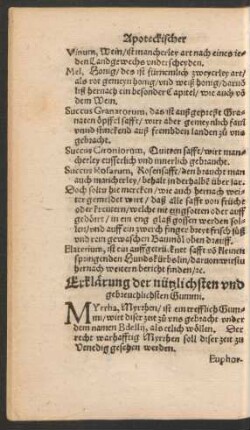 Apoteckischer
Vinum, Wein/ ist mancherley art nach eines ie-
den Landgewechs vnterscheyden.
Mel, Honig/ des ist fürnemlich zweyerley art/
als rot gemeyn honig/ vnd weiß honig/ daruō
liß hernach ein besonder Capitel/ wie auch vō
dem Wein.
Succus Granatorum, das ist außgepreßt Gra-
naten öpffel safft/ wirt aber gemeynlich faul
vnd stinckend auß frembden landen zu vns
gebracht.
Succus Citoniorum, Quitten safft/ wirt man-
cherley eusserlich vnd innerlich gebraucht.
Succus Rosarum, Rosensafft/ den braucht man
auch mancherley/ behalt in derhalb über jar.
Doch soltu hie mercken/ wie auch hernach weit-
ter gemeldet wirt/ daß alle safft von frücht
oder kreütern/ welche int eingsotten oder auff
gedörrt/ in ein eng glaß gossen werden sol-
len/ vnd auff ein zwerch finger breyt frisch süß
vnd rein gewaschen Baumöl oben drauff.
Elaterium, ist ein außgetrückent safft vō kleinen
springenden Hundskürbslin/ daruon wirstu
hernach weitern bericht finden/ ꝛc.
Erklärung der nützlichsten vnd
gebreuchlichsten Gummi.
MYrrha, Myrrhen/ ist ein trefflich Gum-
mi/ wirt diser zeit zů vns gebracht vnder
dem namen Bdelij, als etlich wöllen. Der
recht warhafftig Myrrhen soll diser zeit zů
Venedig gesehen werden.
Euphor-